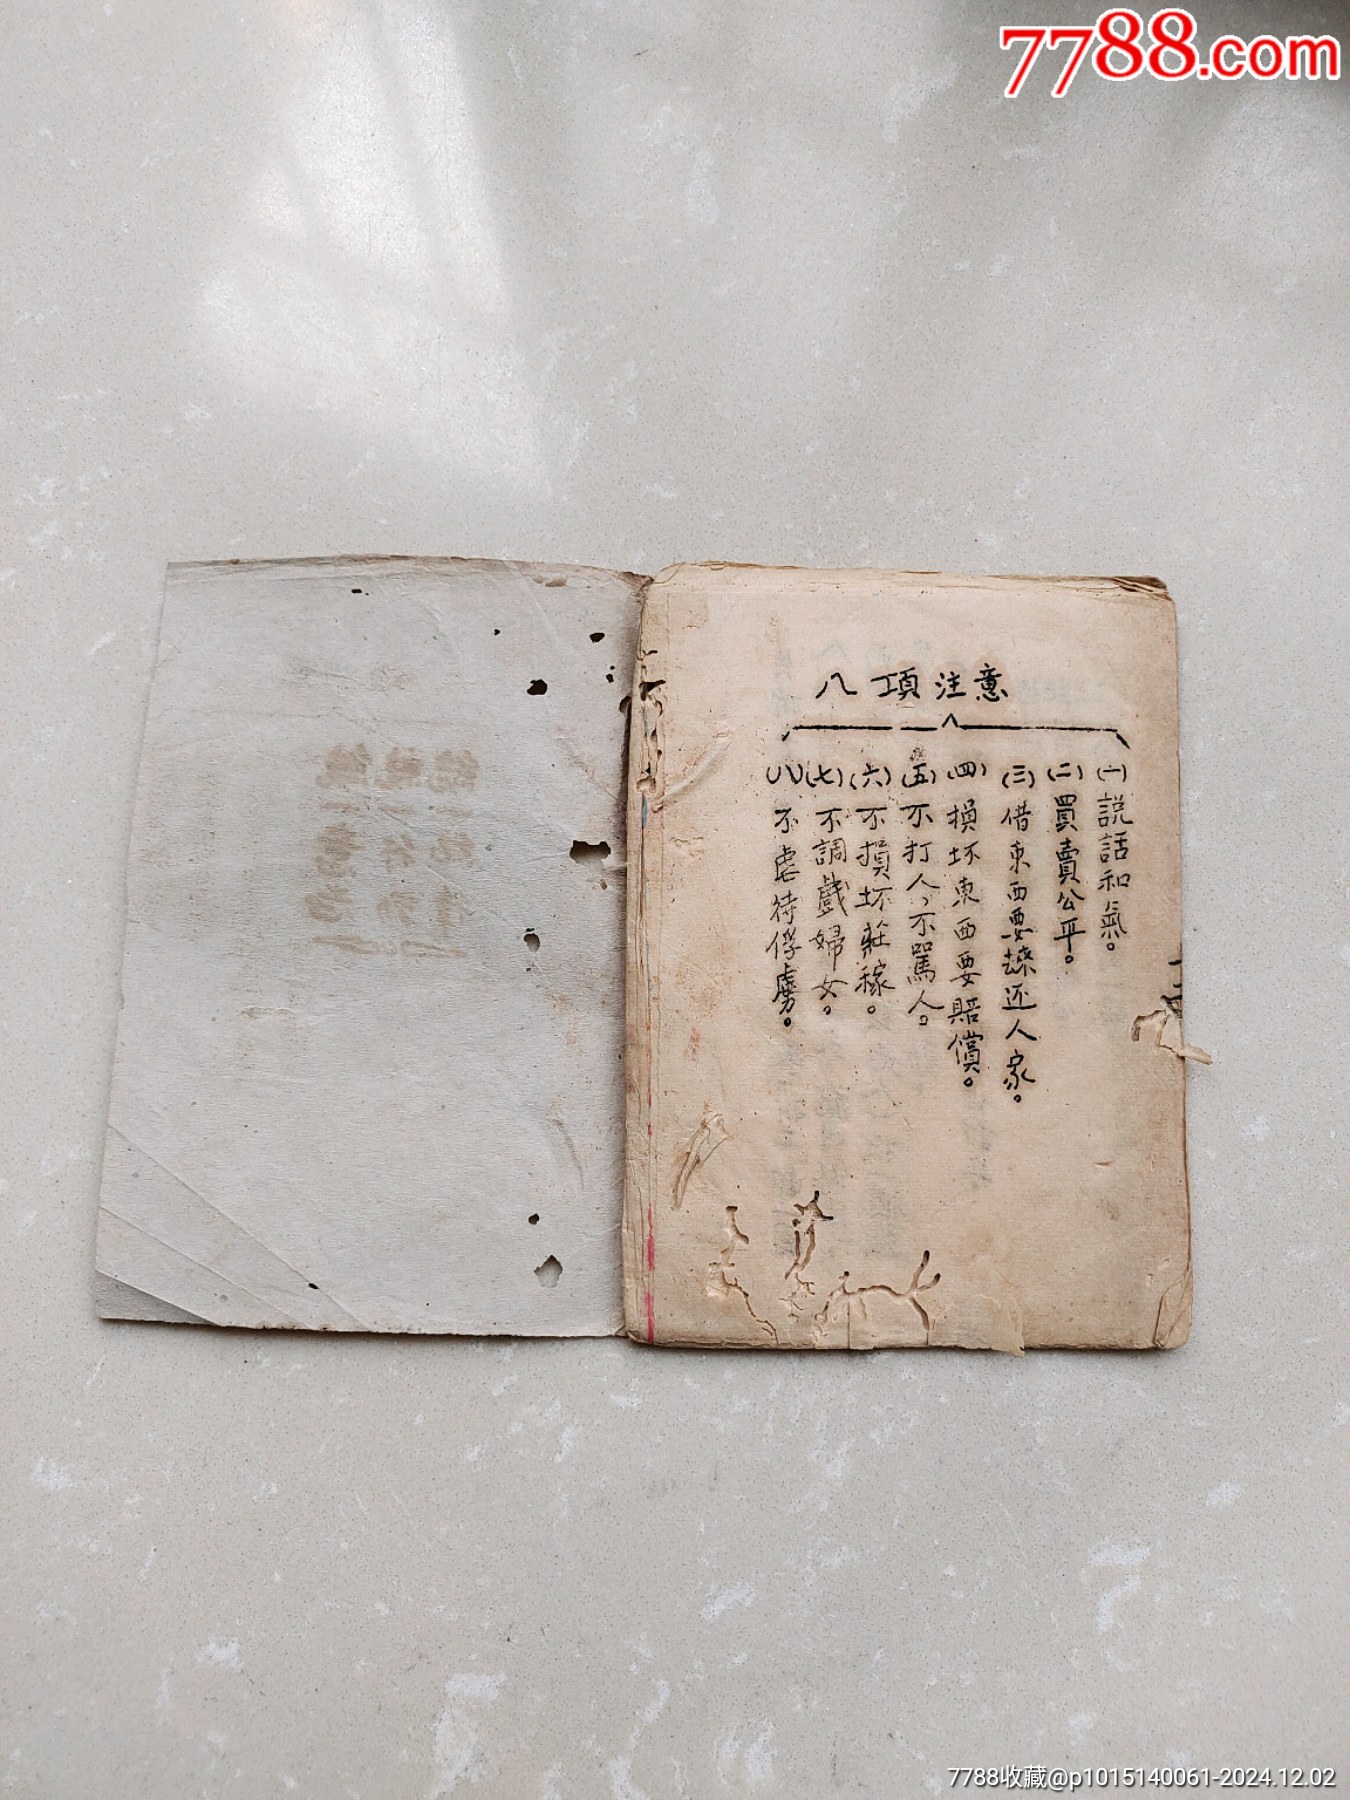 7788.com
八項注意
(一)説話和氣。
(二)買賣公平。
(三)借東西要 还人家。
(四)損坏東西要賠償。
(五)不打人,不罵人。
(六)不損坏莊稼。
(七)不調戲婦女。
(八)不虐待俘虜。
7788收藏@p1015140061-2024.12.02